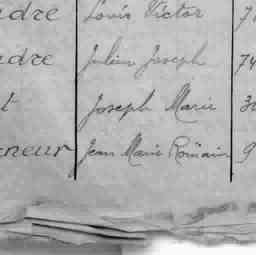 ndre Louis Victor 7
ndre Julien Joseph 74
t Joseph Marie 30
neur Jean Marie Romain 9